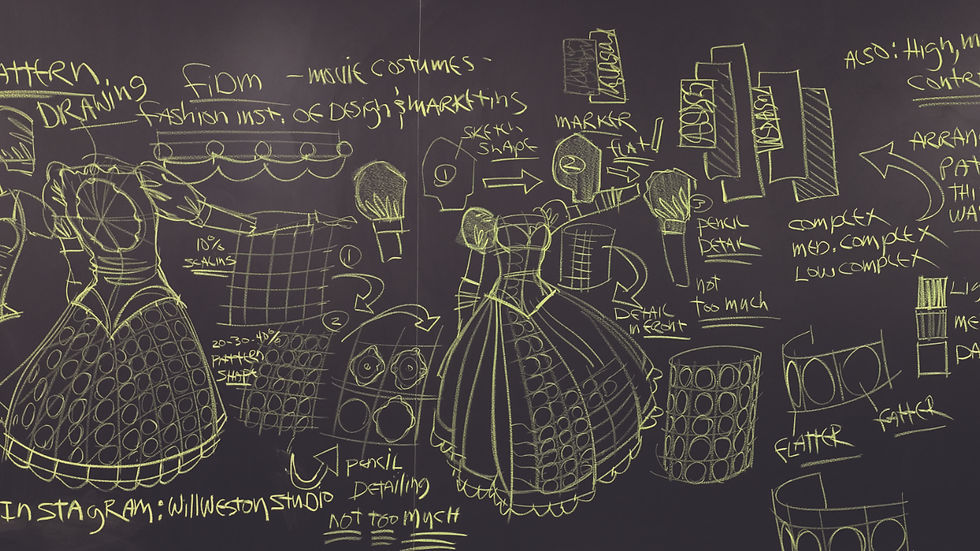 ATTERN
DRAWING
FIDM - MOVIE COSTUMES -
FASHION INST. OF DESIGN & MARKETING
SKETCH
SHAPE
MARKER
FLAT
1
2
3
PENCIL
DETAIL
NOT
TOO MUCH
ALSO: HIGH, M
CONTR
ARRAN
PAT
TH
WA
COMPLEX
MED. COMPLEX
LOW COMPLEX
LI
ME
DA
10%
SCALING
1
2
20-30-40%
PATTERN
SHAPE
2
PENCIL
DETAILING
NOT TOO MUCH
DETAIL
IN FRONT
FLATTER
FATTER
INSTAGRAM: WILLWESTONSTUDIO